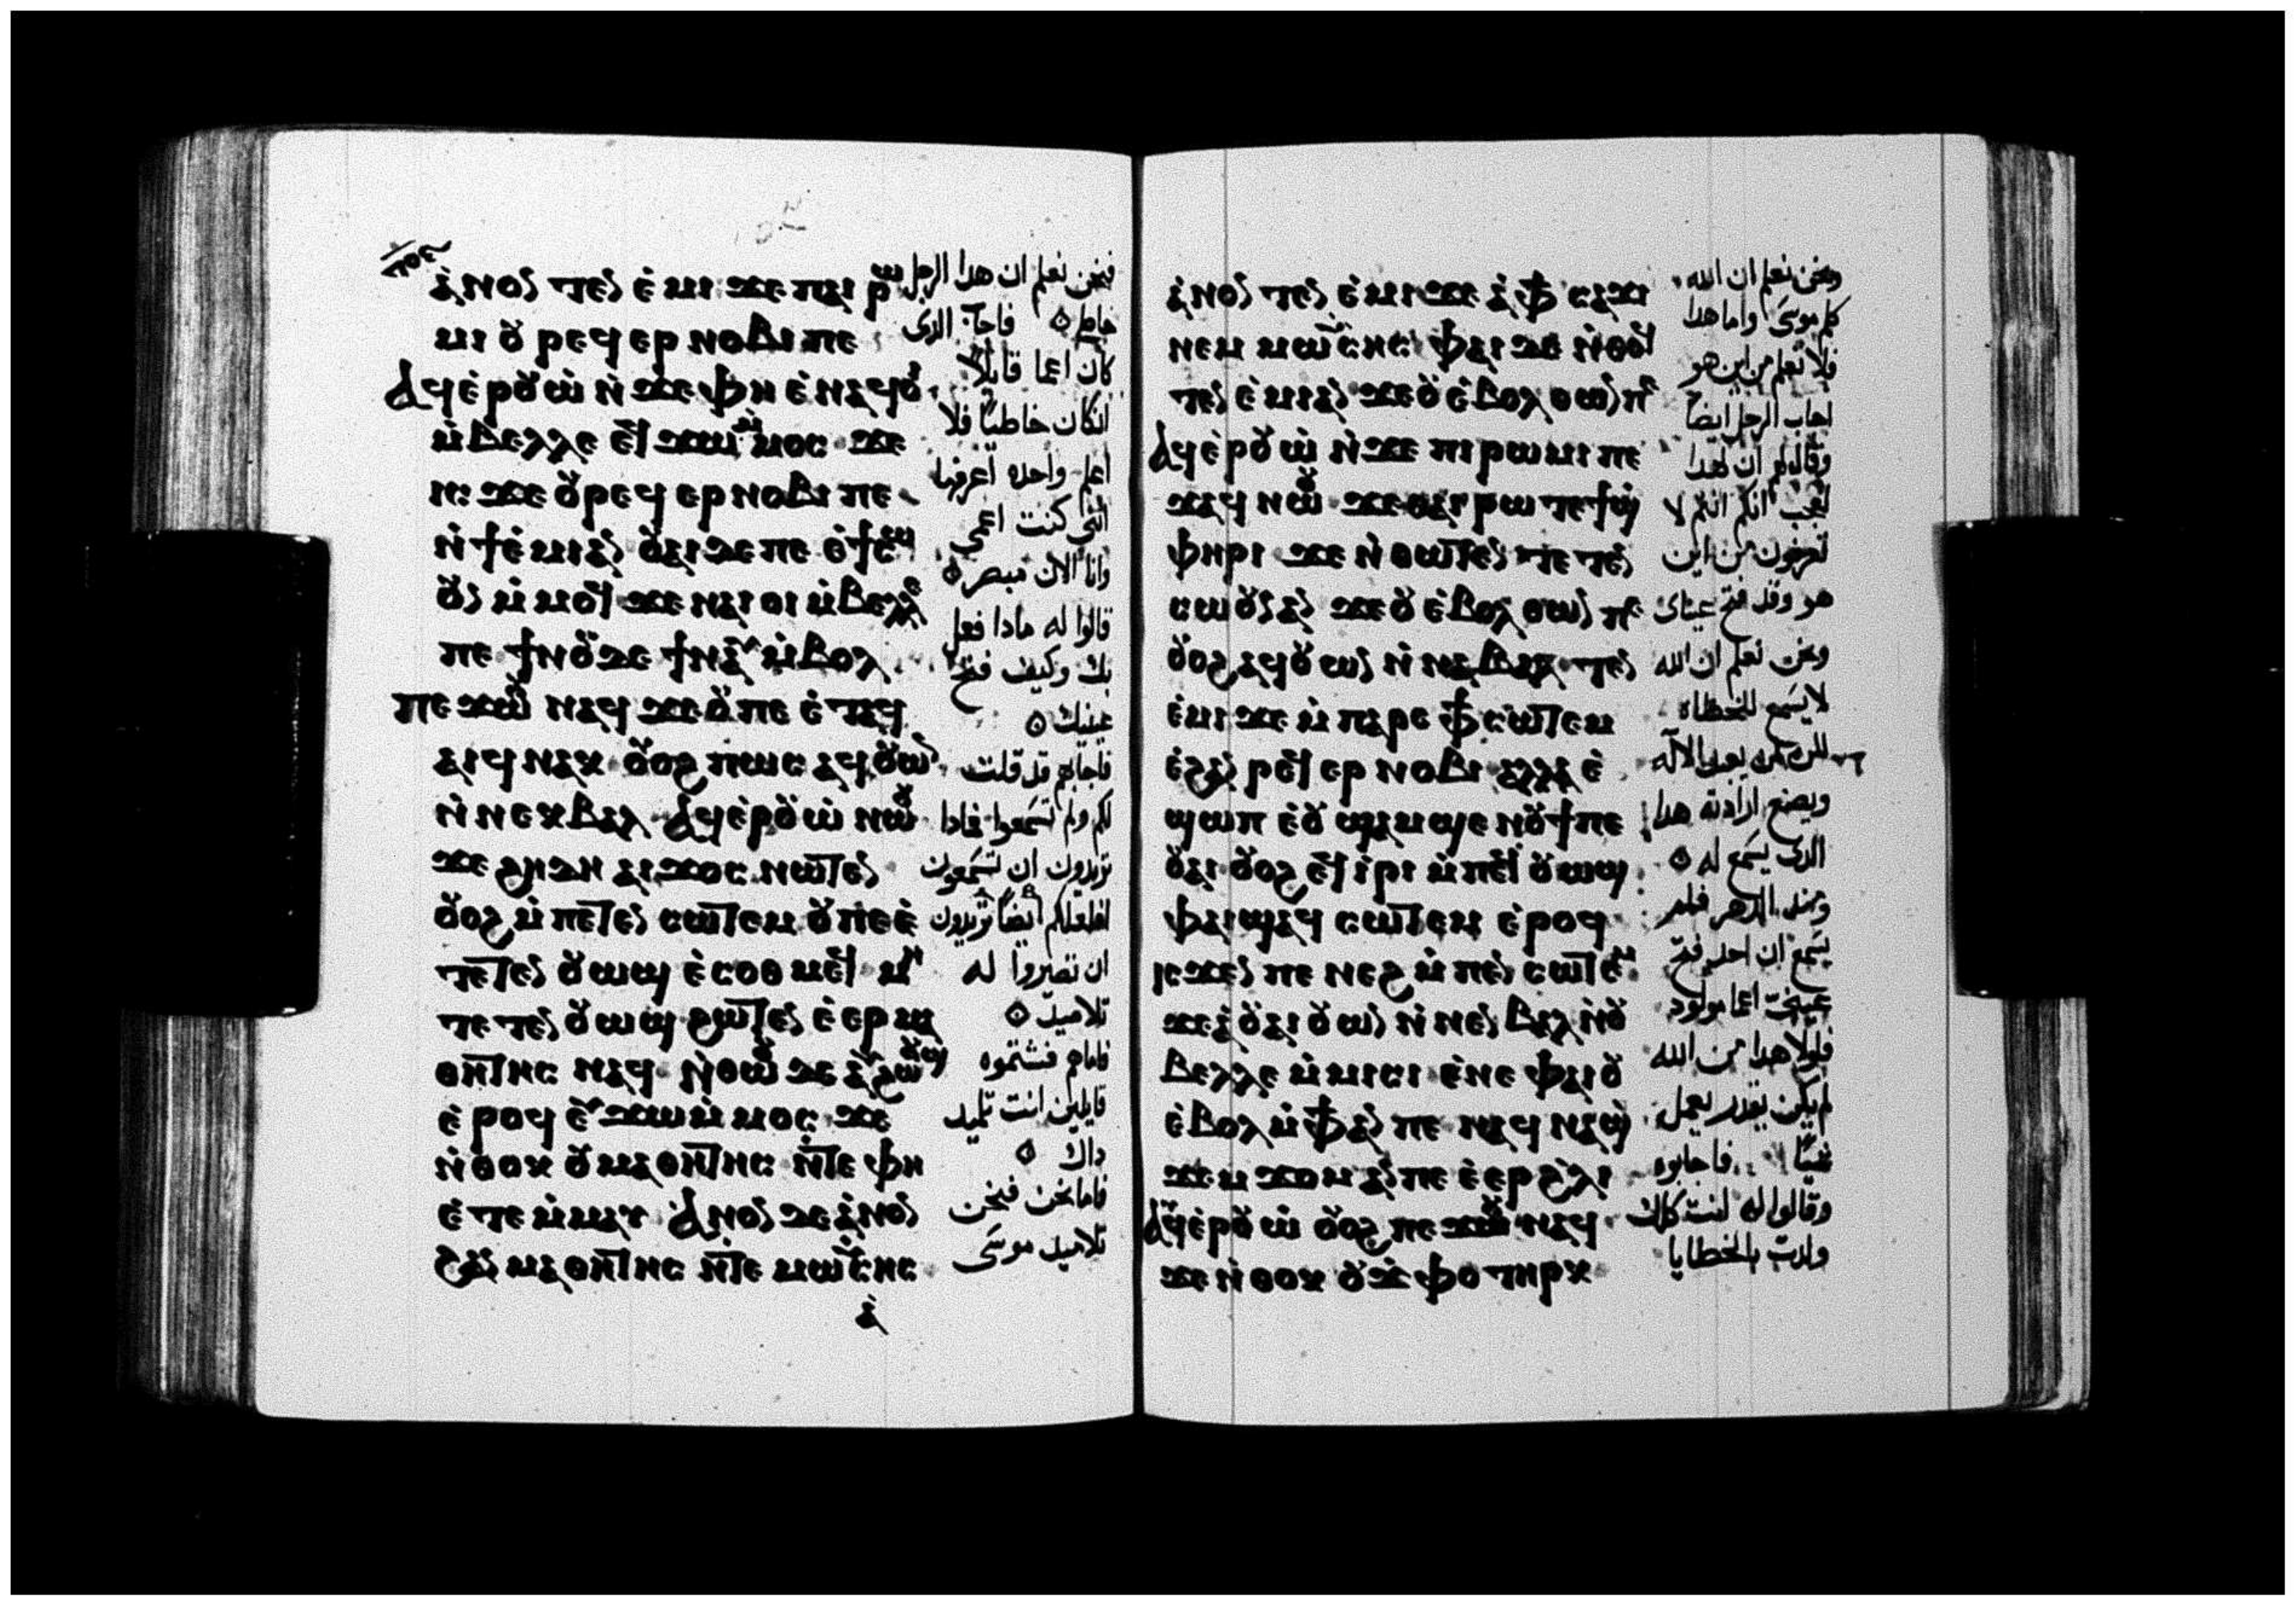 ⲡⲟⲉ
ⲁ̀ⲛⲟⲛ ⲧⲉⲛ ⲉ̀ⲙⲓ ϫⲉ ⲡⲁⲓ ⲣⲱ
ⲙⲓ ⲟⲩ ⲣⲉϥ ⲉⲣ ⲛⲟⲃⲓ ⲡⲉ
ⲁϥⲉ̀ⲣⲟⲩⲱ̀ ⲛ̀ϫⲉ ⲫⲏ ⲉ̀ⲛⲁϥⲟⲓ
ⲙ̀ⲃⲉⲗⲗⲉ ⲉϥϫⲱ ⲙ̀ⲙⲟⲥ ϫⲉ
ⲓⲥ ϫⲉ ⲟⲩⲣⲉϥ ⲉⲣⲛⲟⲃⲓ ⲡⲉ
ⲛ̀ϯⲉ̀ⲙⲓ ⲁⲛ ⲟⲩⲁⲓ ⲇⲉ ⲡⲉ ⲉ̀ϯⲉ̀ⲙⲓ
ⲟⲩⲛ ⲙ̀ⲙⲟϥ ϫⲉ ⲛⲁⲓ ⲟⲓ ⲙ̀ⲃⲉⲗⲗⲉ
ⲡⲉ ϯⲛⲟⲩ ⲇⲉ ϯⲛⲁⲩ ⲙ̀ⲃⲟⲗ
ⲡⲉϫⲱⲟⲩ ⲛⲁϥ ϫⲉ ⲟⲩ ⲡⲉ ⲉ̀ⲧⲁϥ
ⲁⲓϥ ⲛⲁⲕ ⲟⲩⲟϩ ⲡⲱⲥ ⲁϥⲟⲩⲱⲛ
ⲛ̀ⲛⲉⲕⲃⲁⲗ ⲁϥⲉ̀ⲣⲟⲩⲱ̀ ⲛⲱⲟⲩ
ϫⲉ ϩⲏⲇⲏ ⲁⲓϫⲟⲥ ⲛⲱⲧⲉⲛ
ⲟⲩⲟϩ ⲙ̀ⲡⲉⲧⲉⲛ ⲥⲱⲧⲉⲙ ⲟⲩ ⲡⲉ ⲉ̀
ⲧⲉⲧⲉⲛ ⲟⲩⲱϣ ⲉ̀ⲥⲟⲑⲙⲉϥ ⲙⲏ
ⲧⲉⲧⲉⲛ ⲟⲩⲱϣ ϩⲱⲧⲉⲛ ⲉ̀ⲉⲣ ⲙⲁ
ⲑⲏⲧⲏⲥ ⲛⲁϥ ⲛ̀ⲑⲱⲟⲩ ⲇⲉ ⲁⲩϩⲱⲟⲩϣ
ⲉ̀ⲣⲟϥ ⲉⲩϫⲱ ⲙ̀ⲙⲟⲥ ϫⲉ
ⲛ̀ⲑⲟⲕ ⲟⲩⲙⲁⲑⲏⲧⲏⲥ ⲛ̀ⲧⲉ ⲫⲏ
ⲉ̀ⲧⲉⲙ̀ⲙⲁⲩ ⲁⲛⲟⲛ ⲇⲉ ⲁ̀ⲛⲟⲛ
ϩⲁⲛ ⲙⲁⲑⲏⲧⲏⲥ ⲛ̀ⲧⲉ ⲙⲱⲩⲥⲏⲥ
ⲁ̀
فنحن نعلم ان هدا الرجل
خاطى ٥ فاجاب الدى
كان اعما قايلا
ان كان خاطيا فلا
اعلم واحده اعرفها
اننى كنت اعمى
وانا الان مبصر ٥
قالوا له مادا فعل
بك وكيف فتح
عينيك ٥
فاجابهم قد قلت
لكم ولم تسمعوا فمادا
تريدون ان تسمعون
افلعلكم ايضا تريدون
ان تصيروا له
تلاميد ٥
فاماهم فشتموه
قايلين انت تلميد
داك ٥
فاما نحن فنحن
تلاميد موسى
ⲁ̀ⲛⲟⲛ ⲧⲉⲛ ⲉ̀ⲙⲓ ϫⲉ ⲁ̀ ⲫϯ ⲥⲁϫⲓ
ⲛⲉⲙ ⲙⲱⲩⲥⲏⲥ ⲫⲁⲓ ⲇⲉ ⲛ̀ⲑⲟϥ
ⲧⲉⲛ ⲉ̀ⲙⲓ ⲁⲛ ϫⲉ ⲟⲩ ⲉ̀ⲃⲟⲗ ⲑⲱⲛ ⲡⲉ
ⲁϥⲉ̀ⲣⲟⲩⲱ̀ ⲛ̀ϫⲉ ⲡⲓⲣⲱⲙⲓ ⲡⲉ
ϫⲁϥ ⲛⲱⲟⲩ ϫⲉ ⲑⲁⲓ ⲣⲱ ⲧⲉ ϯϣ
ⲫⲏⲣⲓ ϫⲉ ⲛ̀ⲑⲱⲧⲉⲛ ⲧⲉⲧⲉⲛ
ⲥⲱⲟⲩⲛ ⲁⲛ ϫⲉ ⲟⲩ ⲉ̀ⲃⲟⲗ ⲑⲱⲛ ⲡⲉ
ⲟⲩⲟϩ ⲁϥⲟⲩⲱⲛ ⲛ̀ⲛⲁⲃⲁⲗ ⲧⲉⲛ
ⲉ̀ⲙⲓ ϫⲉ ⲙ̀ⲡⲁⲣⲉ ⲫϯ ⲥⲱⲧⲉⲙ
ⲉ̀ϩⲁⲛ ⲣⲉϥ ⲉⲣ ⲛⲟⲃⲓ ⲁⲗⲗⲁ ⲉ̀
ϣⲱⲡ ⲉ̀ⲟⲩ ϣⲁⲙϣⲉ ⲛⲟⲩϯ ⲡⲉ
ⲟⲩⲁⲓ ⲟⲩⲟϩ ⲉϥⲓ̀ⲣⲓ ⲙ̀ⲡⲉϥ ⲟⲩⲱϣ
ⲫⲁⲓ ϣⲁϥ ⲥⲱⲧⲉⲙ ⲉ̀ⲣⲟϥ
ⲓⲥϫⲉⲛ ⲡⲉⲛⲉϩ ⲙ̀ⲡⲉⲛ ⲥⲱⲧⲉⲙ
ϫⲉ ⲁ̀ ⲟⲩⲁⲓ ⲟⲩⲱⲛ ⲛ̀ⲛⲉⲛⲃⲁⲗ ⲛ̀ⲟⲩ
ⲃⲉⲗⲗⲉ ⲙ̀ⲙⲓⲥⲓ ⲉ̀ⲛⲉ ⲫⲁⲓ ⲟⲩ
ⲉ̀ⲃⲟⲗ ⲙ̀ⲫϯ ⲁⲛ ⲡⲉ ⲛⲁϥ ⲛⲁϣ
ϫⲉⲙ ϫⲟⲙ ⲁⲛ ⲡⲉ ⲉ̀ⲉⲣ ϩ̀ⲗⲓ
ⲁⲩⲉ̀ⲣⲟⲩⲱ̀ ⲟⲩⲟϩ ⲡⲉϫⲱⲟⲩ ⲛⲁϥ
ϫⲉ ⲛ̀ⲑⲟⲕ ⲟⲩϫ̀ⲫⲟ ⲧⲏⲣⲕ
ونحن نعلم ان الله
كلم موسى واما هدا
فلا نعلم من اين هو
اجاب الرجل ايضا
وقال لهم ان لهدا
لعجب انكم انتم لا
تعرفون من اين
هو وقد فتح عيناى
ونحن نعلم ان الله
لا يسمع للخطاه
لكن من يعبد الاله
ويصنع ارادته هدا
الدى يسمع له ٥
ومند الدهر فلم
يسمع ان احد فتح
عينى اعما مولود
فلولا هدا من الله
لم يكن يقدر يعمل
شيا فاجابوه
وقالوا له انت كلك
ولدت بالخطايا